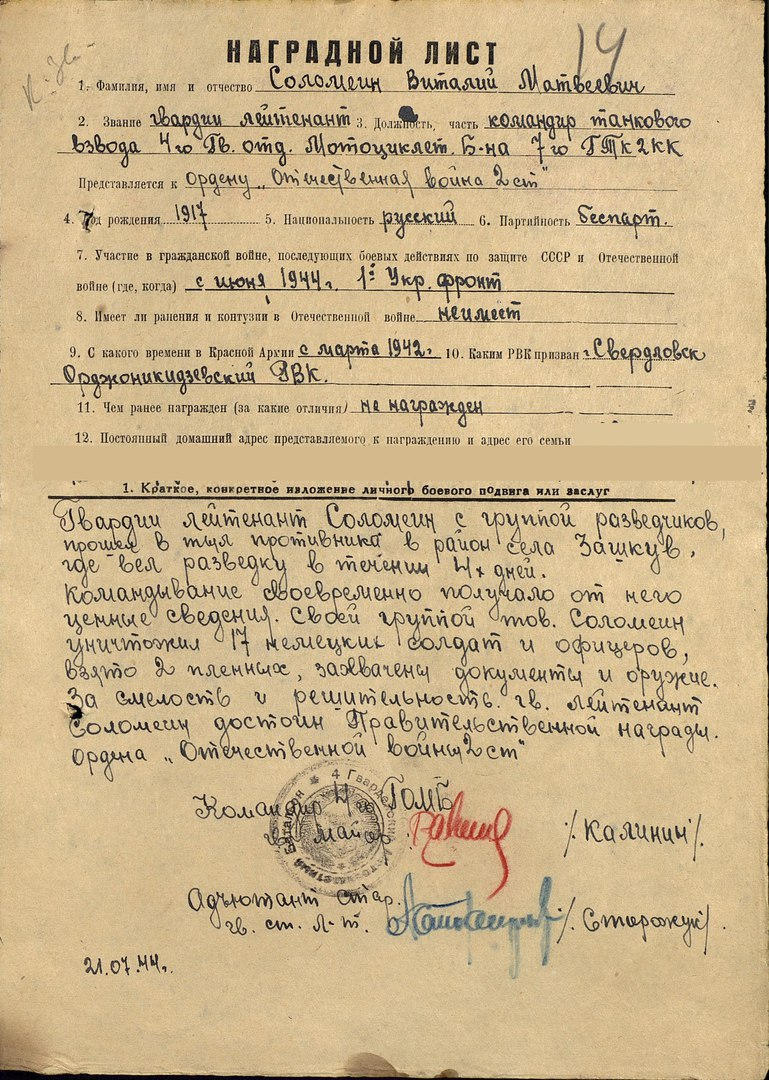 14
НАГРАДНОЙ ЛИСТ
1. Фамилия, имя и отчество Соломеин Виталий Матвеевич
2. Звание гвардии лейтенант 3. Должность, часть командир танкового
взвода 4го Гв. отд. Мотоциклет. Б-на 7го ГТК2КК
Представляется к ордену „Отечественная война 2ст"
4. Год рождения 1917 5. Национальность русский 6. Партийность Беспарт.
7. Участие в гражданской войне, последующих боевых действиях по защите СССР и Отечественной
войне (где, когда) с июня 1944г. 1й Укр. фронт
8. Имеет ли ранения и контузии в Отечественной войне неимеет
9. С какого времени в Красной Архии с марта 1942г. 10. Каким РВК призван г. Свердловск
Орджоникидзевский РВК.
11. Чем ранее награжден (за какие отличия) не награжден
12. Постоянный домашний адрес представляемого к награждению и адрес его семьи
1. Краткое, конкретное изложение личного боевого подвига или заслуг
Гвардии лейтенант Соломеин с группой разведчиков,
прошел в тыл противника в район села Зашкув,
где вел разведку в течении 4х дней.
Командывание своевременно получало от него
ценные сведения. Своей группой тов. Соломеин
уничтожил 17 немецких солдат и офицеров,
взято 2 пленных, захвачены документы и оружие.
За смелость и решительность гв. лейтенант
Соломеин достоин Правительственной награды.
Ордена „Отечественной войны 2ст"
Командир 4 гв ГОМБ
гв. майор /Калинин/.
Адъютант стар.
гв. ст. л-т. /Сторожук/.
21.07.44г.